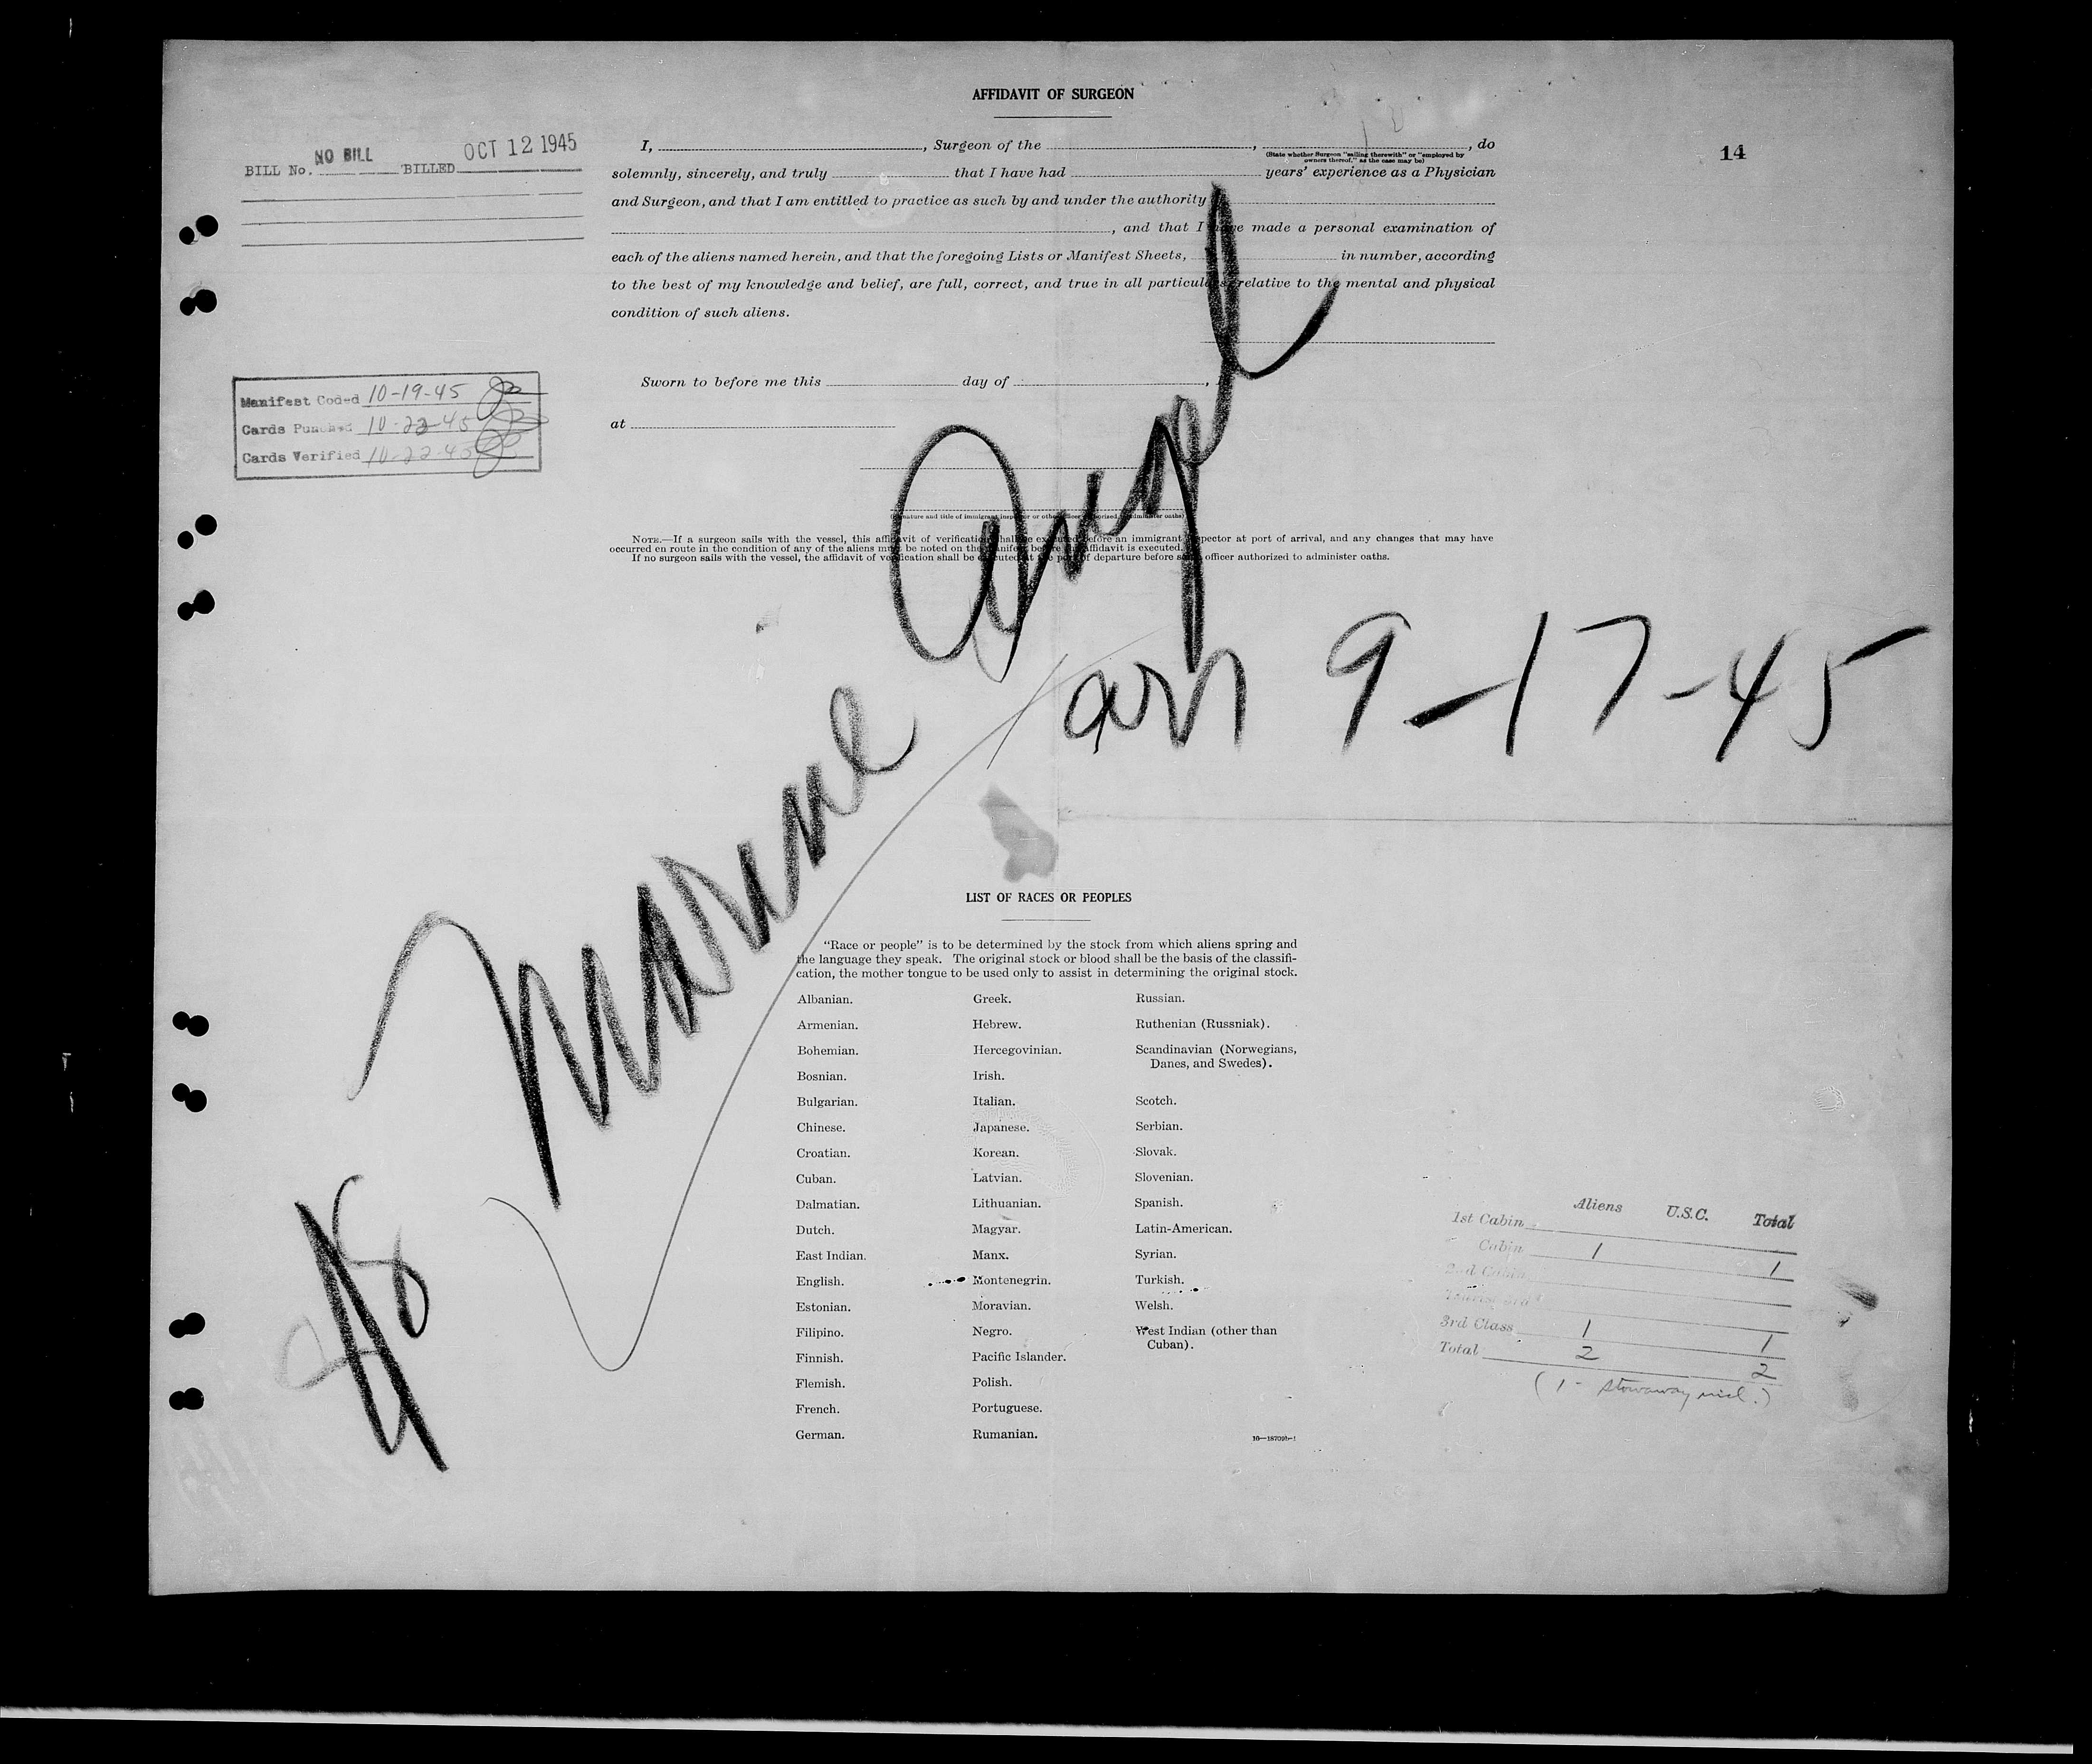 AFFIDAVIT OF SURGEON
14
BILL No. NO BILL BILLED OCT 12 1945
I, , Surgeon of the , , do
(State whether Surgeon "sailing therewith" or "employed by
owners thereof," as the case may be)
solemnly, sincerely, and truly that I have had years' experience as a Physician
and Surgeon, and that I am entitled to practice as such by and under the authority
, and that I have made a personal examination of
each of the aliens named herein, and that the foregoing Lists or Manifest Sheets, in number, according
to the best of my knowledge and belief, are full, correct, and true in all particulars relative to the mental and physical
condition of such aliens.
Manifest Coded 10-19-45
Cards Punched 10-22-45
Cards Verified 10-22-45
Sworn to before me this day of ,
at
(Signature and title of immigrant inspector or other officer authorized to administer oaths)
NOTE.—If a surgeon sails with the vessel, this affidavit of verification shall be executed before an immigrant inspector at port of arrival, and any changes that may have
occurred en route in the condition of any of the aliens must be noted on the manifest before the affidavit is executed.
If no surgeon sails with the vessel, the affidavit of verification shall be executed at the port of departure before some officer authorized to administer oaths.
Marine Angel
arr 9-17-45
LIST OF RACES OR PEOPLES
"Race or people" is to be determined by the stock from which aliens spring and
the language they speak. The original stock or blood shall be the basis of the classifi-
cation, the mother tongue to be used only to assist in determining the original stock.
Albanian.
Armenian.
Bohemian.
Bosnian.
Bulgarian.
Chinese.
Croatian.
Cuban.
Dalmatian.
Dutch.
East Indian.
English.
Estonian.
Filipino.
Finnish.
Flemish.
French.
German.
Greek.
Hebrew.
Hercegovinian.
Irish.
Italian.
Japanese.
Korean.
Latvian.
Lithuanian.
Magyar.
Manx.
Montenegrin.
Moravian.
Negro.
Pacific Islander.
Polish.
Portuguese.
Rumanian.
Russian.
Ruthenian (Russniak).
Scandinavian (Norwegians,
Danes, and Swedes).
Scotch.
Serbian.
Slovak.
Slovenian.
Spanish.
Latin-American.
Syrian.
Turkish.
Welsh.
West Indian (other than
Cuban).
16—18709b-1
Aliens U.S.C. Total
1st Cabin
Cabin 1 1
2nd Cabin
Tourist 3rd
3rd Class 1 1
Total 2 2
(1 - stowaway incl.)